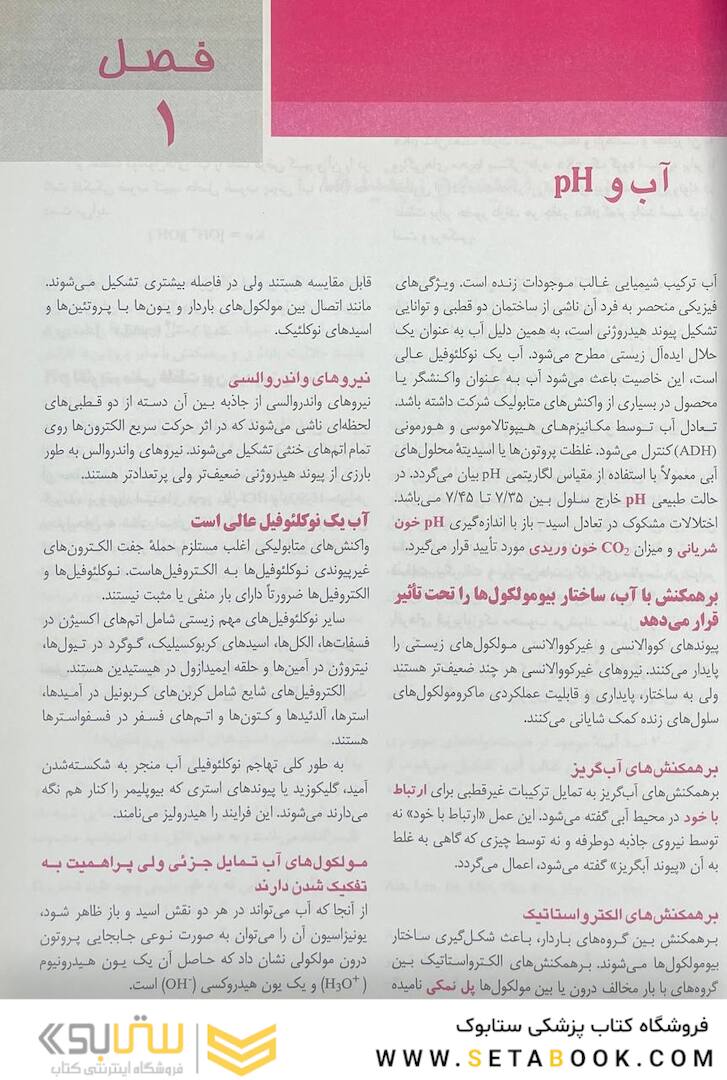 فصل
۱
آب و pH
آب ترکیب شیمیایی غالب موجودات زنده است. ویژگی‌های
فیزیکی منحصر به فرد آن ناشی از ساختمان دو قطبی و توانایی
تشکیل پیوند هیدروژنی است، به همین دلیل آب به عنوان یک
حلال ایده‌آل زیستی مطرح می‌شود. آب یک نوکلئوفیل عالی
است، این خاصیت باعث می‌شود آب به عنوان واکنشگر یا
محصول در بسیاری از واکنش‌های متابولیک شرکت داشته باشد.
تعادل آب توسط مکانیزم‌های هیپوتالاموسی و هورمونی
(ADH) کنترل می‌شود. غلظت پروتون‌ها یا اسیدیتهٔ محلول‌های
آبی معمولاً با استفاده از مقیاس لگاریتمی pH بیان می‌گردد. در
حالت طبیعی pH خارج سلول بین ۷/۳۵ تا ۷/۴۵ می‌باشد.
اختلالات مشکوک در تعادل اسید- باز با اندازه‌گیری pH خون
شریانی و میزان CO₂ خون وریدی مورد تأیید قرار می‌گیرد.
برهمکنش با آب، ساختار بیومولکول‌ها را تحت تأثیر
قرار می‌دهد
پیوندهای کووالانسی و غیرکووالانسی مولکول‌های زیستی را
پایدار می‌کنند. نیروهای غیرکووالانسی هر چند ضعیف‌تر هستند
ولی به ساختار، پایداری و قابلیت عملکردی ماکرومولکول‌های
سلول‌های زنده کمک شایانی می‌کنند.
برهمکنش‌های آب‌گریز
برهمکنش‌های آب‌گریز به تمایل ترکیبات غیرقطبی برای ارتباط
با خود در محیط آبی گفته می‌شود. این عمل «ارتباط با خود» نه
توسط نیروی جاذبه دوطرفه و نه توسط چیزی که گاهی به غلط
به آن «پیوند آبگریز» گفته می‌شود، اعمال می‌گردد.
برهمکنش‌های الکترواستاتیک
برهمکنش بین گروه‌های باردار، باعث شکل‌گیری ساختار
بیومولکول‌ها می‌شوند. برهمکنش‌های الکترواستاتیک بین
گروه‌های با بار مخالف درون یا بین مولکول‌ها پل نمکی نامیده
قابل مقایسه هستند ولی در فاصله بیشتری تشکیل می‌شوند.
مانند اتصال بین مولکول‌های باردار و یون‌ها با پروتئین‌ها و
اسیدهای نوکلئیک.
نیروهای واندروالسی
نیروهای واندروالسی از جاذبه بین آن دسته از دو قطبی‌های
لحظه‌ای ناشی می‌شوند که در اثر حرکت سریع الکترون‌ها روی
تمام اتم‌های خنثی تشکیل می‌شوند. نیروهای واندروالس به طور
بارزی از پیوند هیدروژنی ضعیف‌تر ولی پرتعدادتر هستند.
آب یک نوکلئوفیل عالی است
واکنش‌های متابولیکی اغلب مستلزم حملهٔ جفت الکترون‌های
غیرپیوندی نوکلئوفیل‌ها به الکتروفیل‌هاست. نوکلئوفیل‌ها و
الکتروفیل‌ها ضرورتاً دارای بار منفی یا مثبت نیستند.
سایر نوکلئوفیل‌های مهم زیستی شامل اتم‌های اکسیژن در
فسفات‌ها، الکل‌ها، اسیدهای کربوکسیلیک، گوگرد در تیول‌ها،
نیتروژن در آمین‌ها و حلقه ایمیدازول در هیستیدین هستند.
الکتروفیل‌های شایع شامل کربن‌های کربونیل در آمیدها،
استرها، آلدئیدها و کتون‌ها و اتم‌های فسفر در فسفواسترها
هستند.
به طور کلی تهاجم نوکلئوفیلی آب منجر به شکسته‌شدن
آمید، گلیکوزید یا پیوندهای استری که بیوپلیمر را کنار هم نگه
می‌دارند می‌شوند. این فرایند را هیدرولیز می‌نامند.
مولکول‌های آب تمایل جزئی ولی پراهمیت به
تفکیک شدن دارند
از آنجا که آب می‌تواند در هر دو نقش اسید و باز ظاهر شود،
یونیزاسیون آن را می‌توان به صورت نوعی جابجایی پروتون
درون مولکولی نشان داد که حاصل آن یک یون هیدرونیوم
(H₃O⁺) و یک یون هیدروکسی (OH⁻) است.
فروشگاه کتاب پزشکی ستابوک
WWW.SETABOOK.COM
ستابوک
فروشگاه اینترنتی کتاب